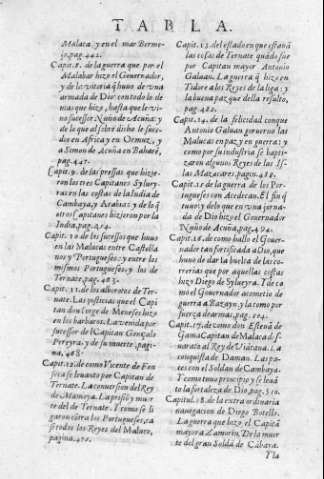 TABLA.
Malaca y en el mar Berme-
jo, pag. 442.
Capit. 8. de la guerra que por el
Malabar hizo el Governador,
y de la vitoria q̃ huno de una
armada de Dio: con todo lo de
mas que hizo, hasta que le vi-
no sucessor Nuño de Acuña: y
de lo que al sobre dicho le suce-
dio en Africa y en Ormuz, y
a Simon de Acuña en Baharẽ,
pag. 447.
Capit. 9. de las pressas que hizie-
ron los tres Capitanes Sylvey-
ras en las costas de la India de
Cambaya, y Arabia: y de lo q̃
otros Capitanes hizieron por la
India, pag. 454.
Capit. 10. de los sucessos que huvo
en las Malucas entre Castella
nos y Portugueses: y entre los
mismos Portugueses, y los de
Ternate, pag. 463.
Capit. 11. de los alborotos de Ter-
nate. Las justicias que el Capi
tan don Iorge de Meneses hizo
en los barbaros. La venida por
sucessor de l Capitan Gonçalo
Pereyra, y de su muerte, pagi-
na, 468.
Capit. 12. de como Vicente de Fon
seca se levanto por Capitan de
Ternate. La conversion del Rey
de Mamoya. La prisiõ y muer
te del de Ternate. Y como se li
garon cõtra los Portugueses, ca
si todos los Reyes del Maluco,
pagina, 470.
Capit. 13. del estado en que estavã
las cosas de Ternate quãdo fue
por Capitan mayor Antonio
Galvan. La guerra q̃ hizo en
Tidore a los Reyes de la liga: y
la buena paz que della resulto,
pag. 480.
Capit. 14. de la felicidad conque
Antonio Galvan governo las
Malucas en paz y en guerra: y
como por su industria se bapti-
zaron algunos Reyes de las Is-
las Mazacares, pagin. 488.
Capit. 15. de la guerra de los Por-
tugueses con Acedecan. El fin q̃
tuvo: y de lo que en una jorna-
da de Dio hizo el Governador
Nuño de Acuña, pag. 494.
Capit. 16. de como hallo el Gover-
nador tan fortificada a Dio, que
huvo de dar la buelta: de las co-
rrerias que por aquellas costas
hizo Diego de Sylveyra. Y de co
mo el Governador acometio de
guerra a Bazayn, y la tomo por
fuerça de armas, pag. 504.
Capit. 17. de como don Estevã de
Gama Capitan de Malaca d̃s
barato al Rey de Viãtana. La
conquista de Daman. Las pa-
zes con el Soldan de Cambaya.
Y como tuvo principio y se levã
to la fortaleza de Dio, pag. 510.
Capitul. 18. de la extraordinaria
navegacion de Diego Botello.
La guerra que hizo el Capitã
mayor a Zamorin. De la muer
te del gran Soldã de Cãbaya.
Yla